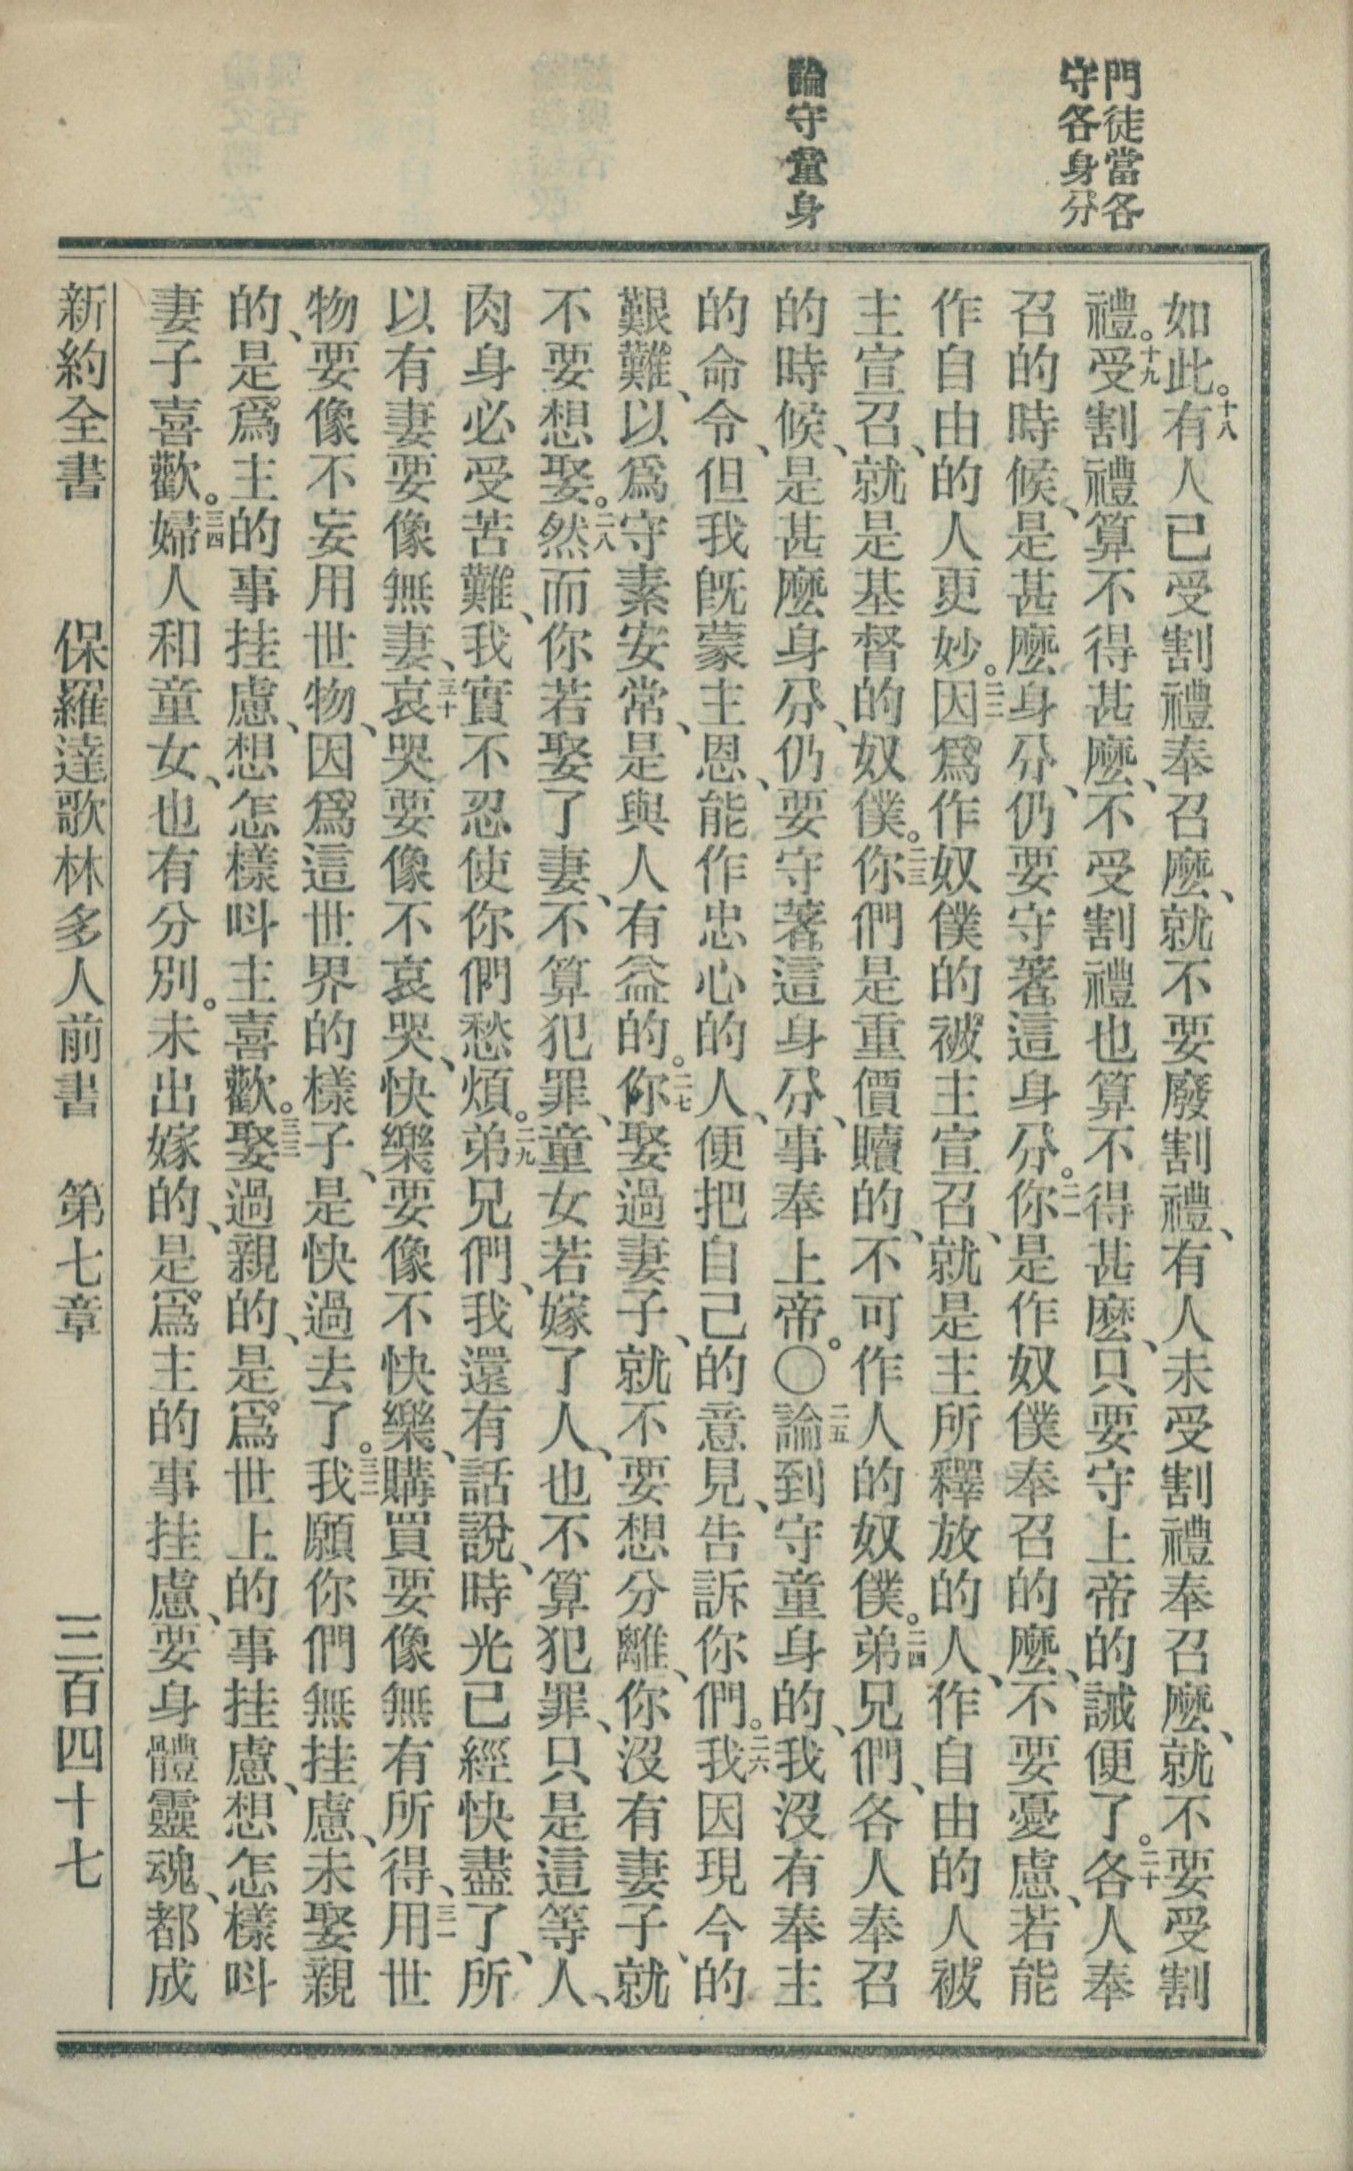 門徒當各
守各身分
論守童身
如此。十八有人已受割禮奉召麽、就不要廢割禮、有人未受割禮奉召麽、就不要受割
禮。十九受割禮算不得甚麽、不受割禮也算不得甚麽、只要守上帝的誡便了。二十各人奉
召的時候、是甚麽身分、仍要守著這身分。二一你是作奴僕奉召的麽、不要憂慮、若能
作自由的人更妙。二二因爲作奴僕的被主宣召、就是主所釋放的人、作自由的人被
主宣召、就是基督的奴僕。二三你們是重價贖的、不可作人的奴僕。二四弟兄們、各人奉召
的時候、是甚麽身分、仍要守著這身分、事奉上帝。〇二五論到守童身的、我沒有奉主
的命令、但我旣蒙主恩、能作忠心的人、便把自己的意見、告訴你們。二六我因現今的
艱難、以爲守素安常、是與人有益的。二七你娶過妻子、就不要想分離、你沒有妻子、就
不要想娶。二八然而你若娶了妻、不算犯罪、童女若嫁了人、也不算犯罪、只是這等人、
肉身必受苦難、我實不忍使你們愁煩。二九弟兄們、我還有話說、時光已經快盡了、所
以有妻要像無妻、三十哀哭要像不哀哭、快樂要像不快樂、購買要像無有所得、三一用世
物要像不妄用世物、因爲這世界的樣子、是快過去了。三二我願你們無挂慮、未娶親
的、是爲主的事挂慮、想怎樣呌主喜歡。三三娶過親的、是爲世上的事挂慮、想怎樣呌
妻子喜歡。三四婦人和童女、也有分別。未出嫁的、是爲主的事挂慮、要身體靈魂、都成
新約全書　保羅達歌林多人前書　第七章　三百四十七